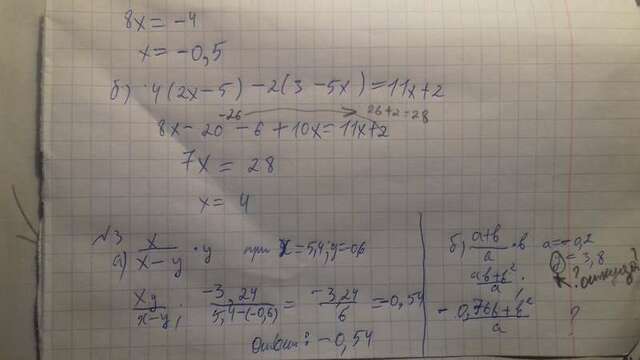 8x = -4
x = -0,5
б) 4(2x-5) - 2(3-5x) = 11x+2
-26 26+2=28
8x - 20 - 6 + 10x = 11x+2
7x = 28
x = 4
N3
а) x/(x-y) · y при x=5,4, y=-0,6
xy/(x-y); -3,24/(5,4-(-0,6)) = -3,24/6 = -0,54
Ответ: -0,54
б) (a+b)/a · b a=-0,2
(ab+b²)/a. b=3,8